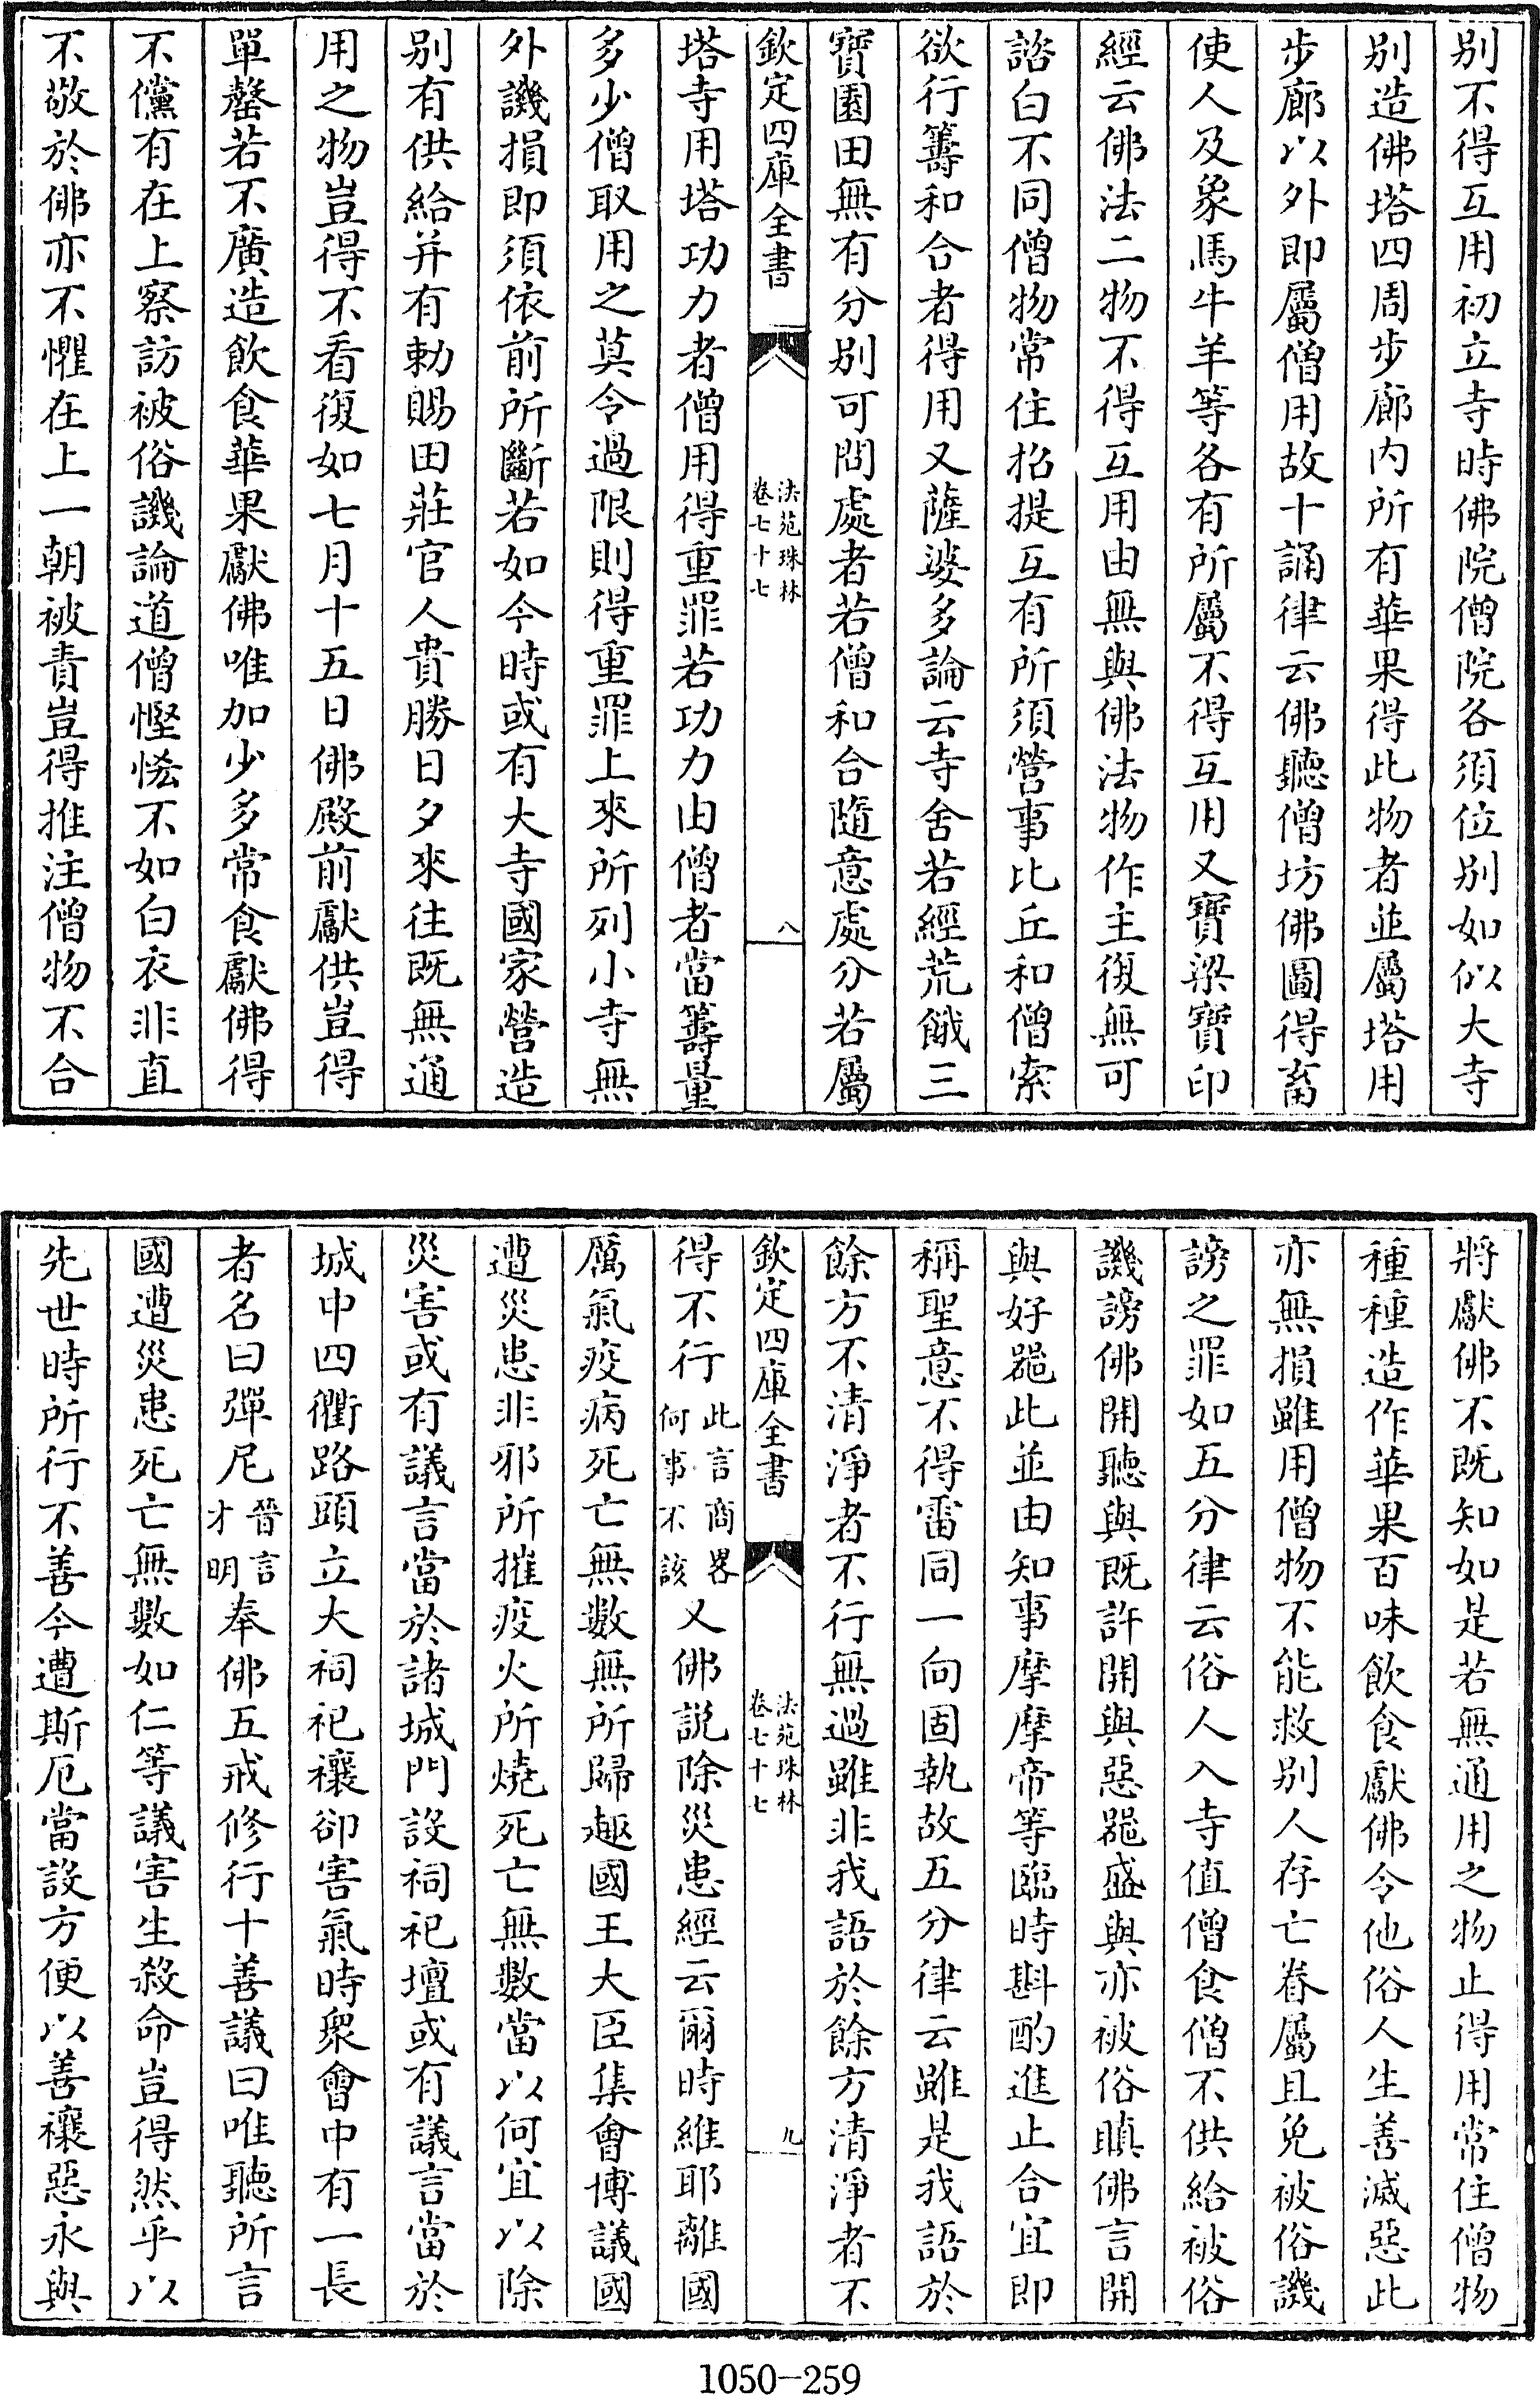 别不得互用初立寺時佛院僧院各須位别如似大寺
别造佛塔四周步廊内所有華果得此物者並屬塔用
步廊以外即屬僧用故十誦律云佛聽僧坊佛圖得畜
使人及象馬牛羊等各有所屬不得互用又寶梁寶印
經云佛法二物不得互用由無與佛法物作主復無可
諮白不同僧物常住招提互有所須營事比丘和僧索
欲行籌和合者得用又薩婆多論云寺舍若經荒餓三
寶園田無有分别可問處者若僧和合隨意處分若屬
欽定四庫全書
法苑珠林
卷七十七
八
塔寺用塔功力者僧用得重罪若功力由僧者當籌量
多少僧取用之莫令過限則得重罪上來所列小寺無
外譏損即須依前所斷若如今時或有大寺國家營造
别有供給并有勅賜田莊官人貴勝日夕來往既無通
用之物豈得不看復如七月十五日佛殿前獻供豈得
單罄若不廣造飲食華果獻佛唯加少多常食獻佛得
不儻有在上察訪被俗譏論道僧慳悋不如白衣非直
不敬於佛亦不懼在上一朝被責豈得推注僧物不合
將獻佛不既知如是若無通用之物止得用常住僧物
種種造作華果百味飲食獻佛令他俗人生善滅惡此
亦無損雖用僧物不能救别人存亡眷屬且免被俗譏
謗之罪如五分律云俗人入寺值僧食僧不供給被俗
譏謗佛開聽與既許開與惡器盛與亦被俗瞋佛言開
與好器此並由知事摩摩帝等臨時斟酌進止合宜即
稱聖意不得雷同一向固執故五分律云雖是我語於
餘方不清淨者不行無過雖非我語於餘方清淨者不
欽定四庫全書
法苑珠林
卷七十七
九
得不行此言商畧何事不該又佛説除災患經云爾時維耶離國
厲氣疫病死亡無數無所歸趣國王大臣集會博議國
遭災患非邪所摧疫火所燒死亡無數當以何宜以除
災害或有議言當於諸城門設祠祀壇或有議言當於
城中四衢路頭立大祠祀禳卻害氣時衆會中有一長
者名曰彈尼晉言才明奉佛五戒修行十善議曰唯聽所言
國遭災患死亡無數如仁等議害生殺命豈得然乎以
先世時所行不善今遭斯厄當設方便以善禳惡永與
1050-259